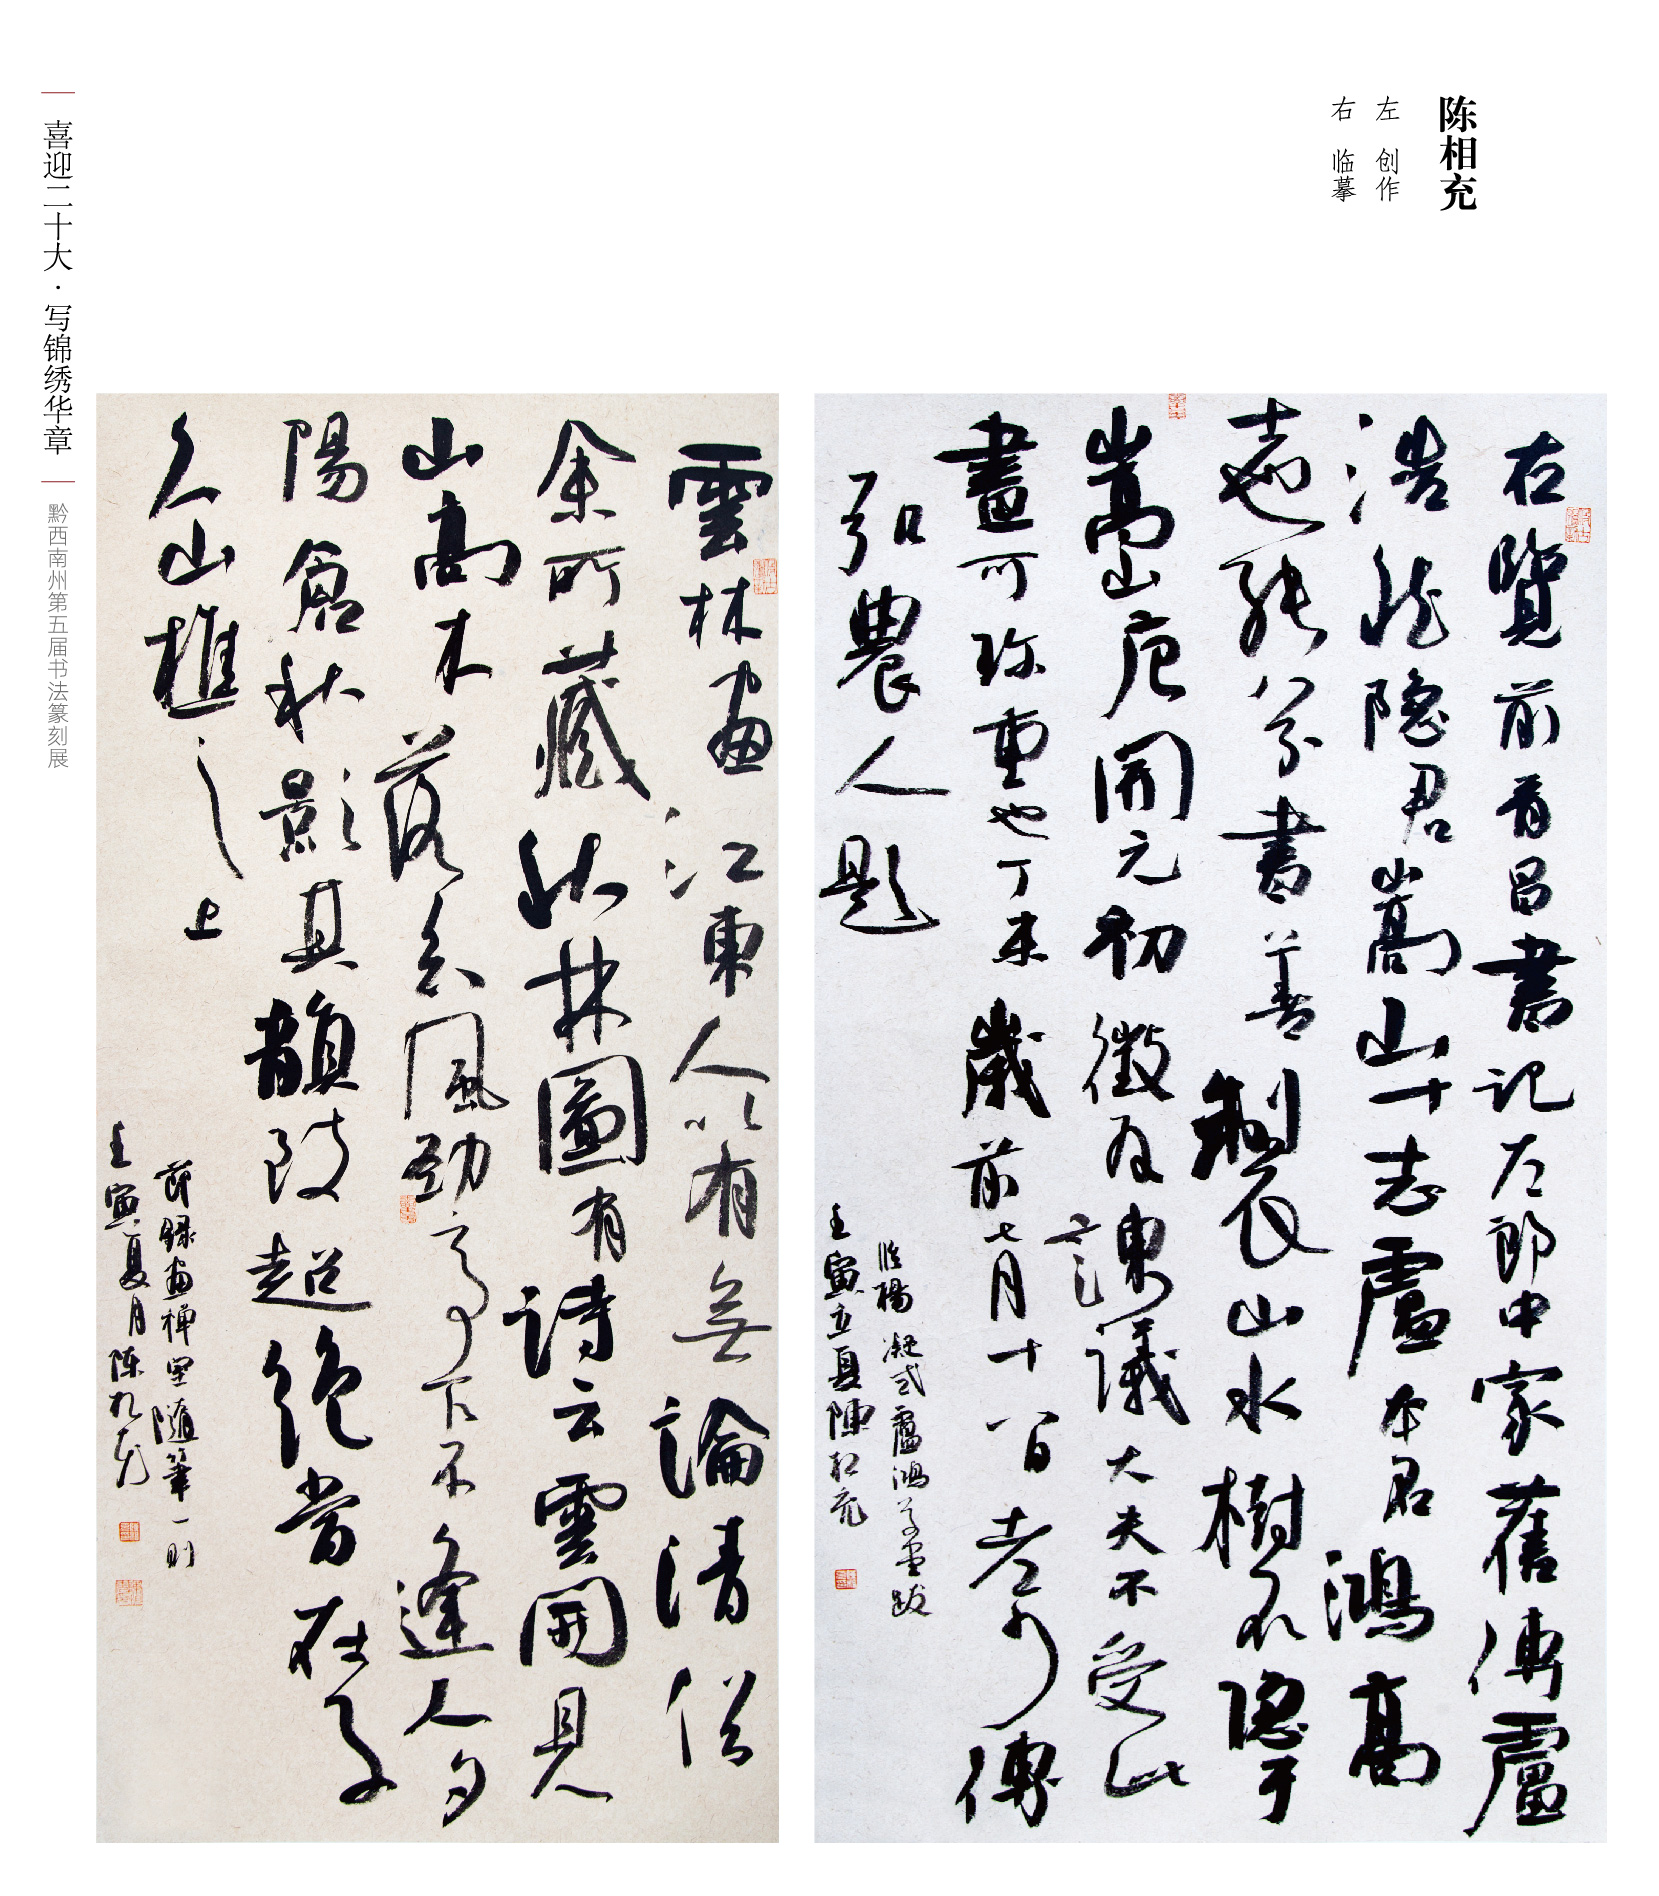 陈相充
左 创作
右 临摹
右覽前晋昌書記左郎中家舊傳盧
浩然隐君嵩山十志盧本名鴻高
士也能八分書善製山水樹石隱于
嵩山唐開元初徵為諫議大夫不受此
畫可珍重也丁未歲前七月十八日老少傅
弘農人題
临楊凝式盧鴻草堂跋
壬寅立夏陳相充
雲林画江東人以有無論清俗
余所藏秋林圖有詩云雲開見
山高木落知風勁亭下不逢人夕
陽澹秋影其韻致超絕當在子
久山樵之上
節録画禅室隨筆一則
壬寅夏月陈相充
喜迎二十大·写锦绣华章
黔西南州第五届书法篆刻展